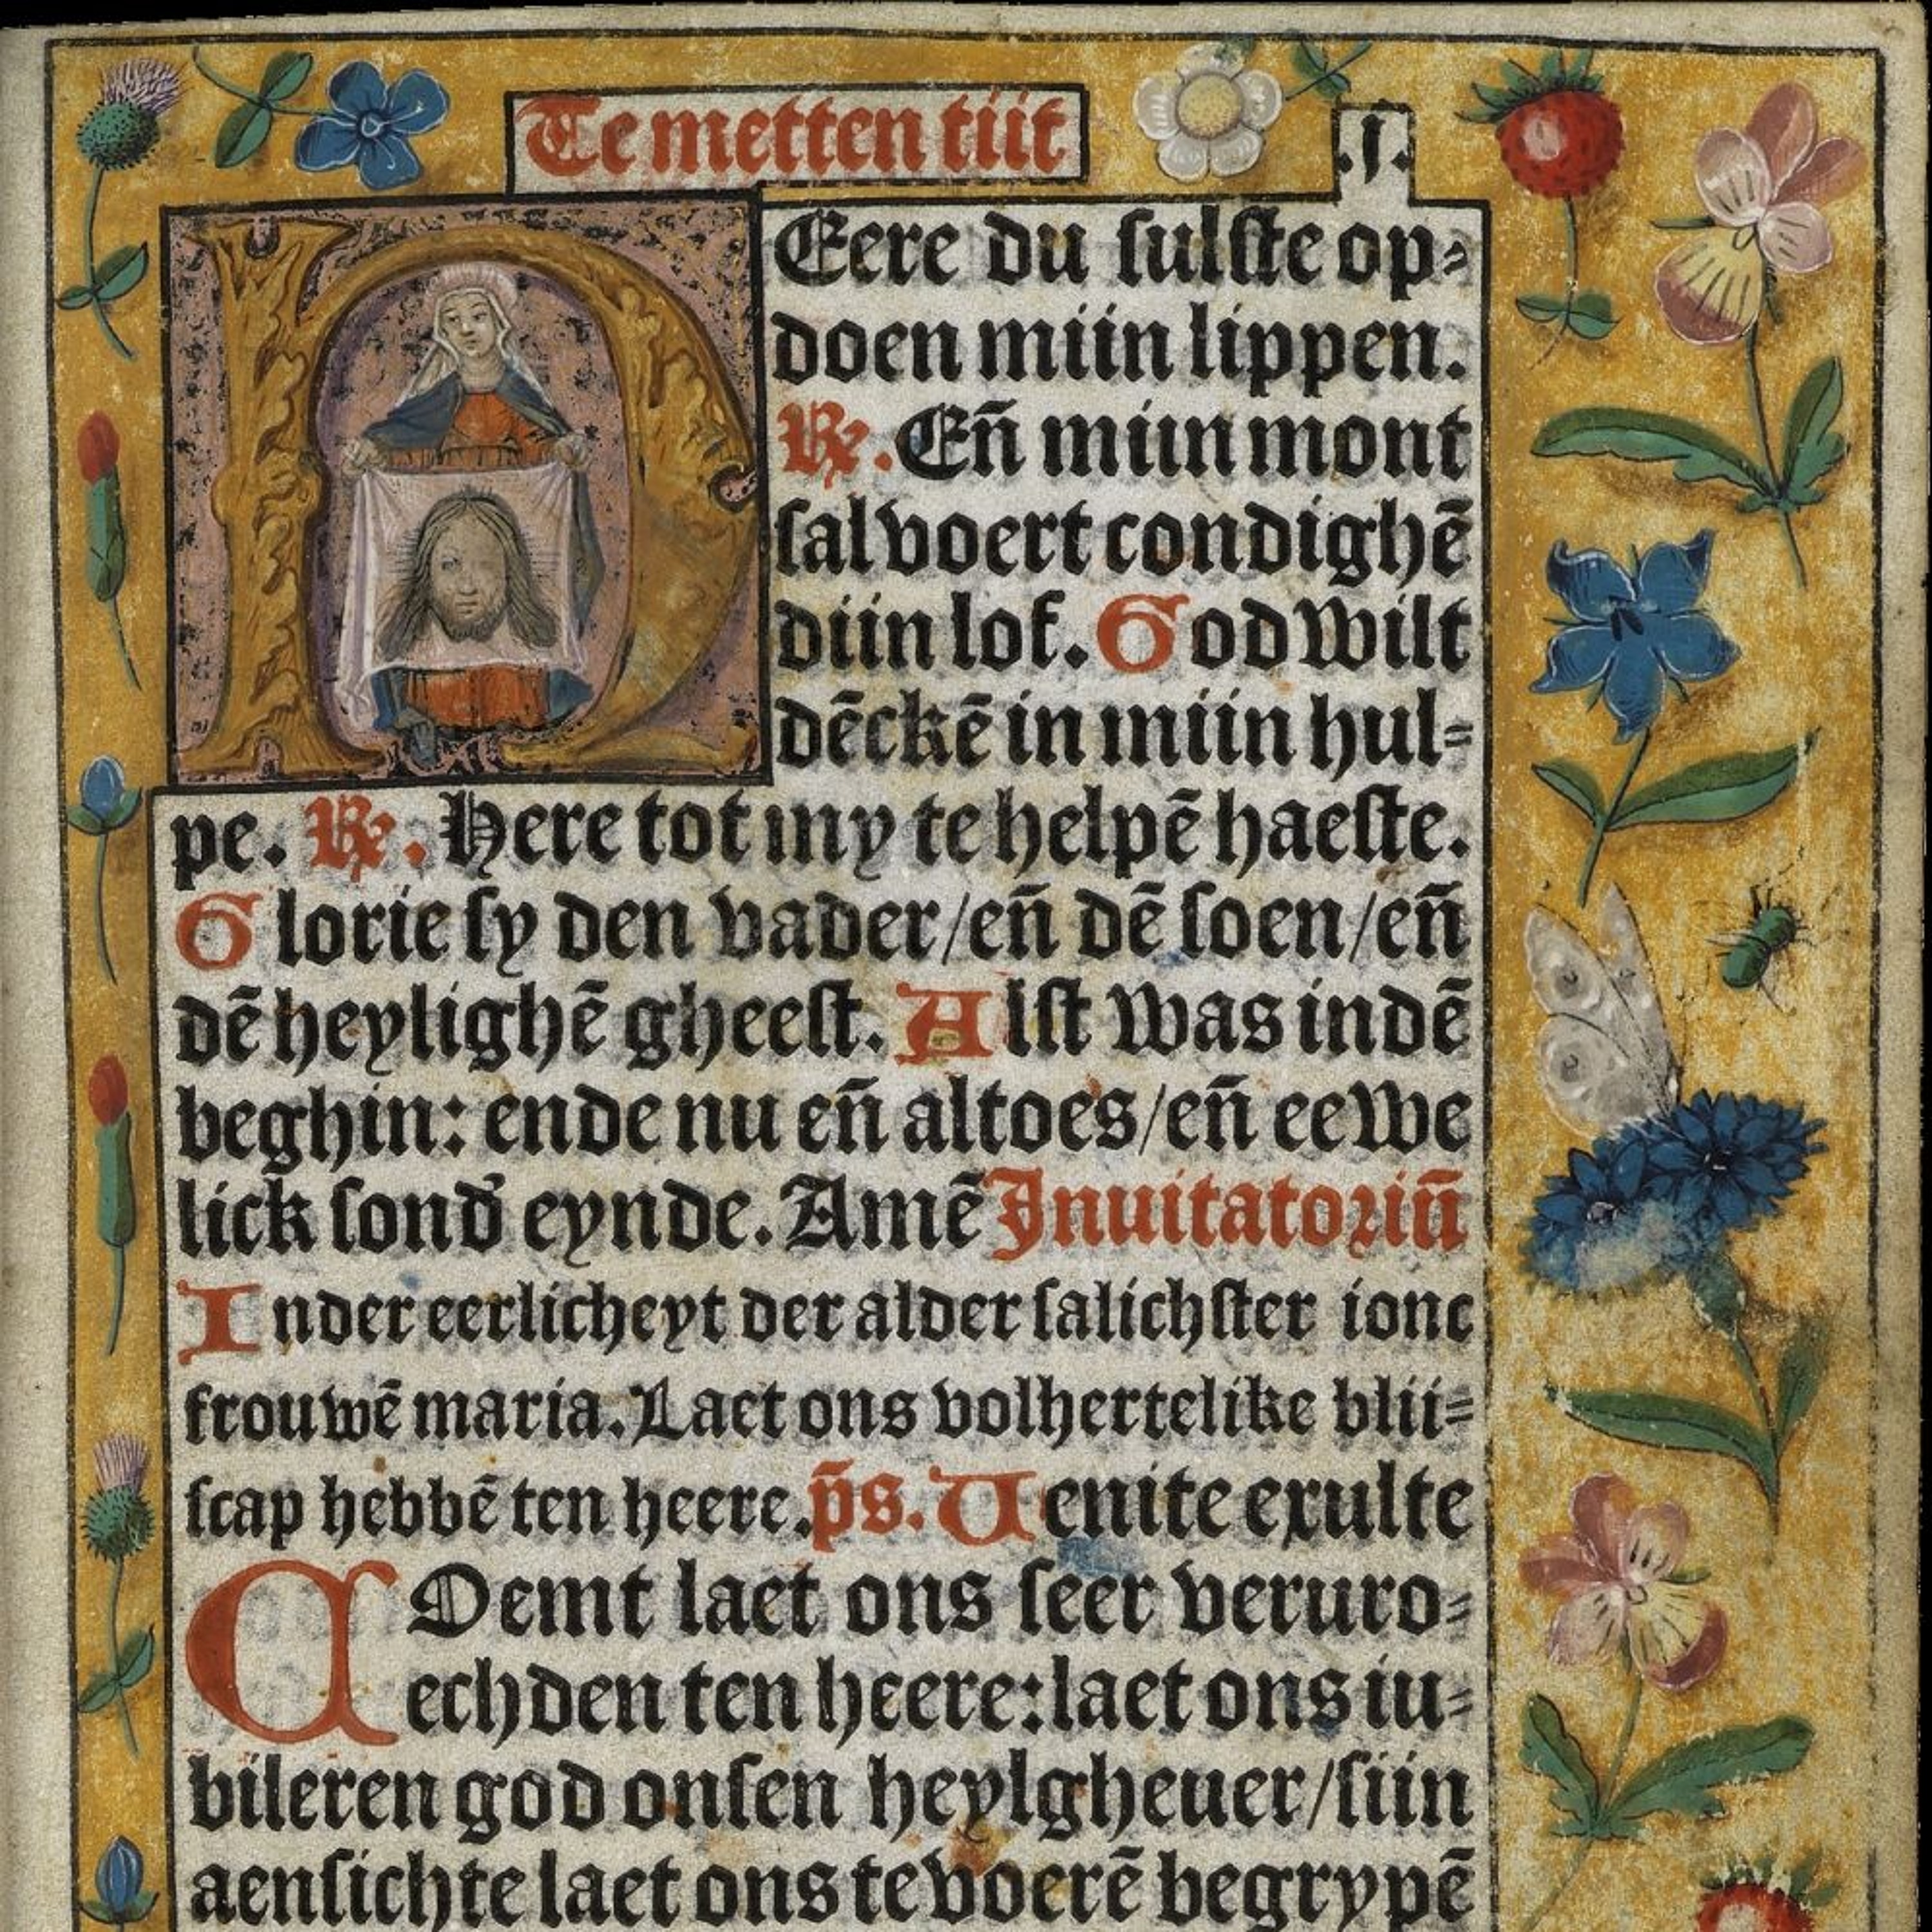 Te metten tiit
.j.
HEere du sulste op⸗
doen miin lippen.
℟. En̄ miin mont
sal voert condighē
diin lof. God wilt
dēckē in miin hul⸗
pe. ℟. Here tot my te helpē haeste.
Glorie sy den vader/en̄ dē soen/en̄
dē heylighē gheest. Alst was in dē
beghin: ende nu en̄ altoes/en̄ eewe
lick sond᷑ eynde. Amē Inuitatoriū
Inder eerlicheyt der alder salichster ionc
frouwē maria. Laet ons volhertelike blii⸗
scap hebbē ten heere. p̄s. Venite exulte
COemt laet ons seer veruro⸗
echden ten heere: laet ons iu⸗
bileren god onsen heylgheuer/siin
aensichte laet ons te voerē begrypē